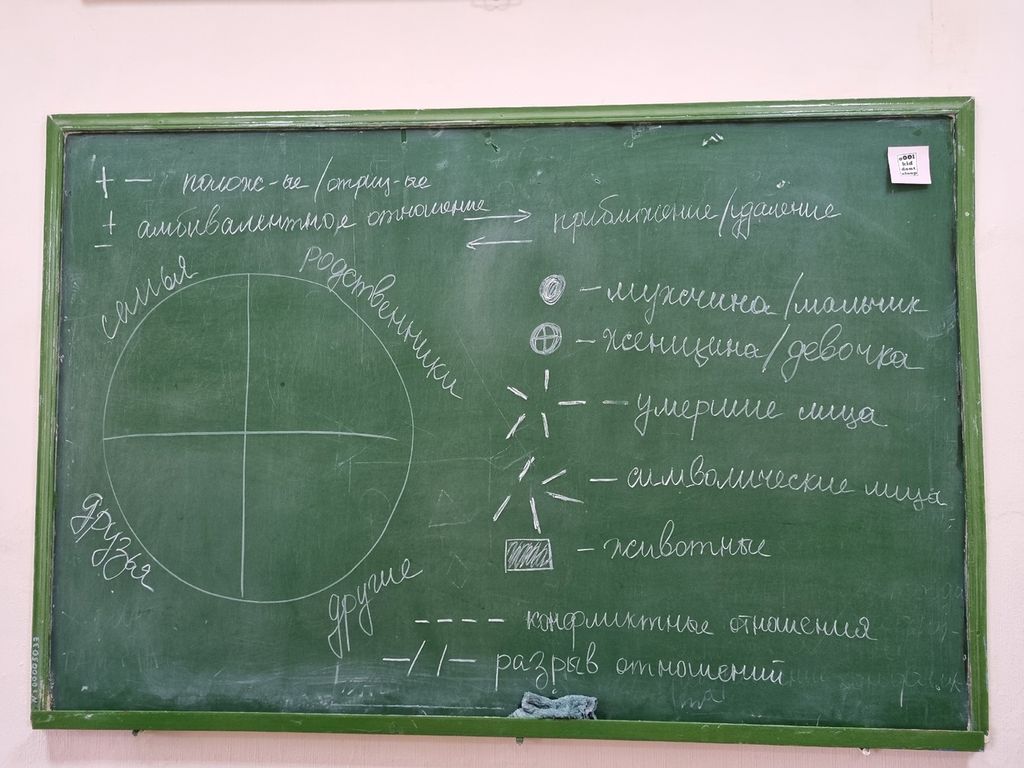 + — полож-ые/отриц-ые
± амбивалентное отношение
приближение/удаление
семья
родственники
— мужчина/мальчик
— женщина/девочка
— умершие лица
— символические лица
— животные
друзья
другие
---- конфликтные отношения
—//— разрыв отношений
kid